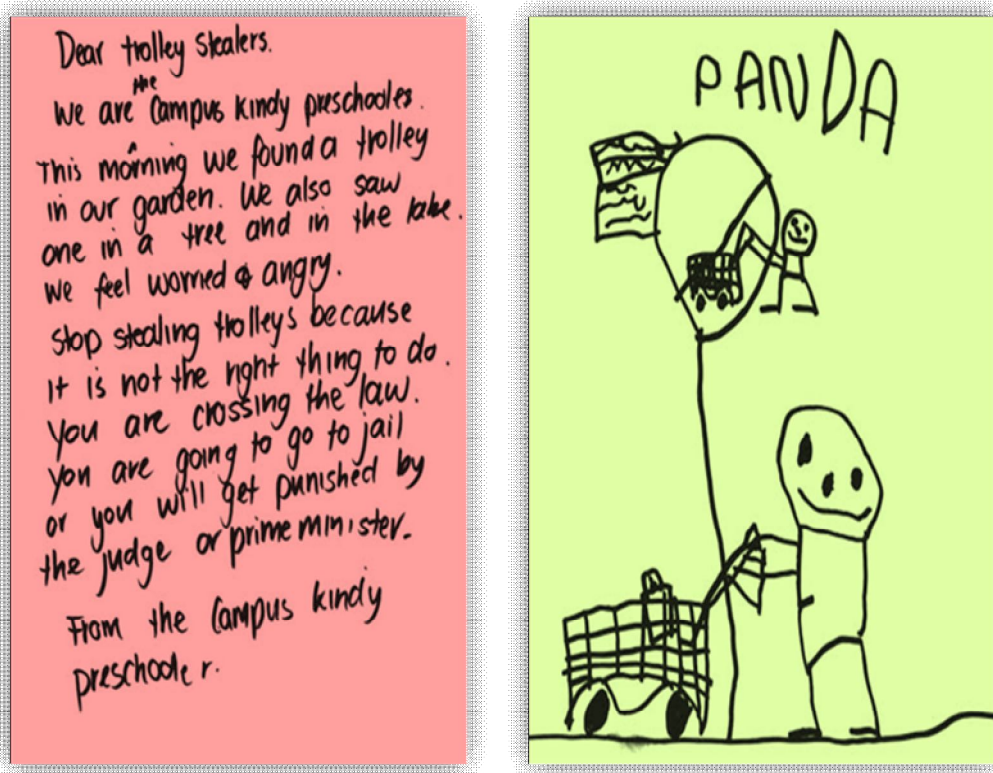 Dear trolley stealers.
the
We are Campus kindy preschooles.
This morning we found a trolley
in our garden. We also saw
one in a tree and in the lake.
We feel worried & angry.
Stop stealing trolleys because
it is not the right thing to do.
You are crossing the law.
You are going to go to jail
or you will get punished by
the judge or prime minister.
From the Campus kindy
preschooler.
PANDA